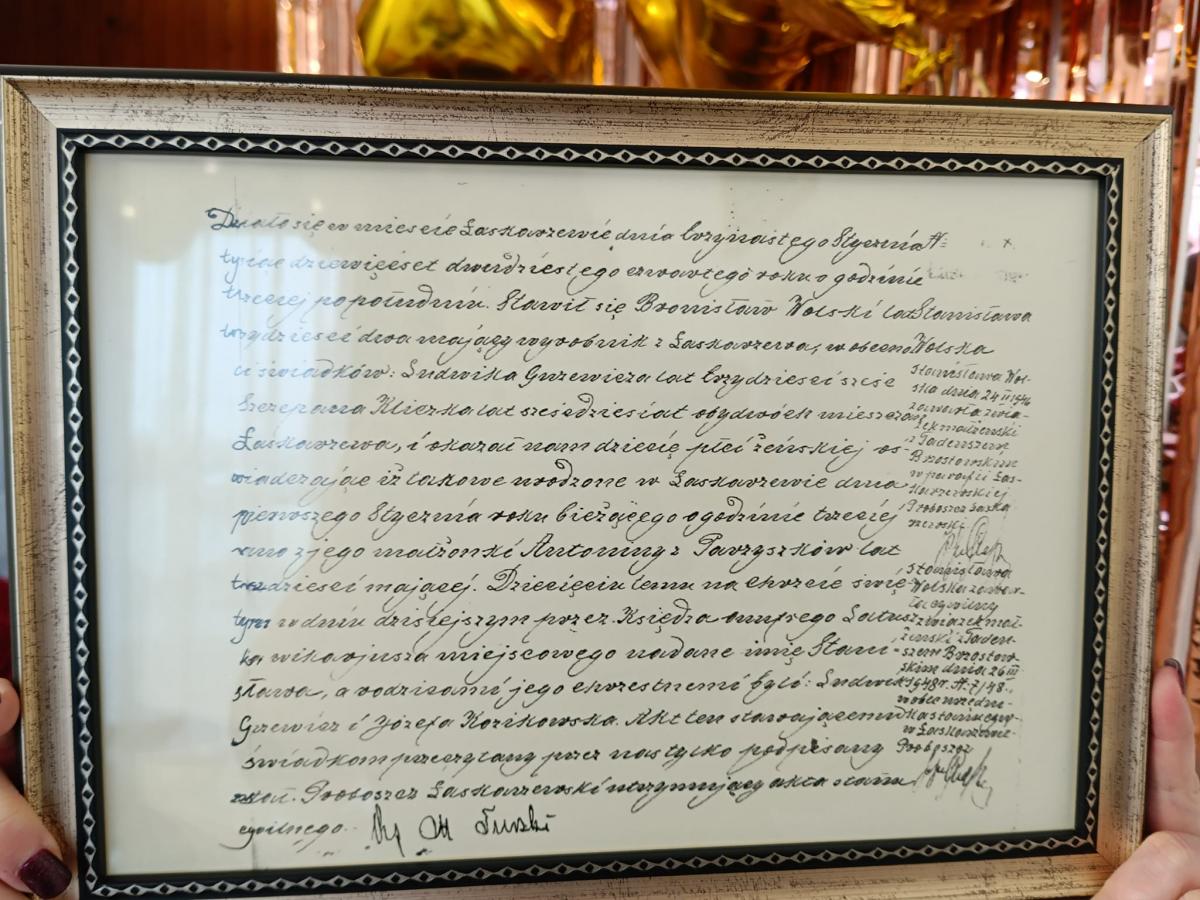 Działo się w mieście Łaskarzewie dnia trzynastego Stycznia
tysiąc dziewięćset dwudziestego czwartego roku o godzinie
trzeciej popołudniu. Stawił się Bronisław Wolski lat
trzydzieści dwa mający wyrobnik z Łaskarzewa, w obecno
ci świadków: Ludwika Gurewicza lat trzydzieści sześć
Szczepana Kliczka lat sześćdziesiąt obydwóch mieszczan
Łaskarzewa, i okazał nam dziecię płci żeńskiej oś-
wiadczając iż takowe urodzone w Łaskarzewie dnia
pierwszego Stycznia roku bieżącego o godzinie trzeciej
rano z jego małżonki Antoniny z Parzyszków lat
trzydzieści mającej. Dziecięciu temu na chrzcie świę
tym w dniu dzisiejszym przez Księdza
ka wikarjusza miejscowego nadane imię Stani
sława, a rodzicami jego chrzestnemi byli: Ludwik
Gurewicz i Józefa Kozikowska. Akt ten stawającemu
świadkom przeczytany przez nas tylko podpisany
Proboszcz Łaskarzewski utrzymujący akta stanu
cywilnego.
Stanisława
Wolska
Stanisława Wol-
ska dnia 24 II 1946
zawarła zwią-
zek małżeński
z Tadeuszem
Brzostowskim
w parafii Łas-
karzewskiej
Proboszcz Łaska
rzewski
Stanisława
Wolska zawar-
ła cywilny
związek mał-
żeński z Tadeu-
szem Brzostow-
skim dnia 26 III
1948 r. 7/48
w Łaskarzewie
Proboszcz